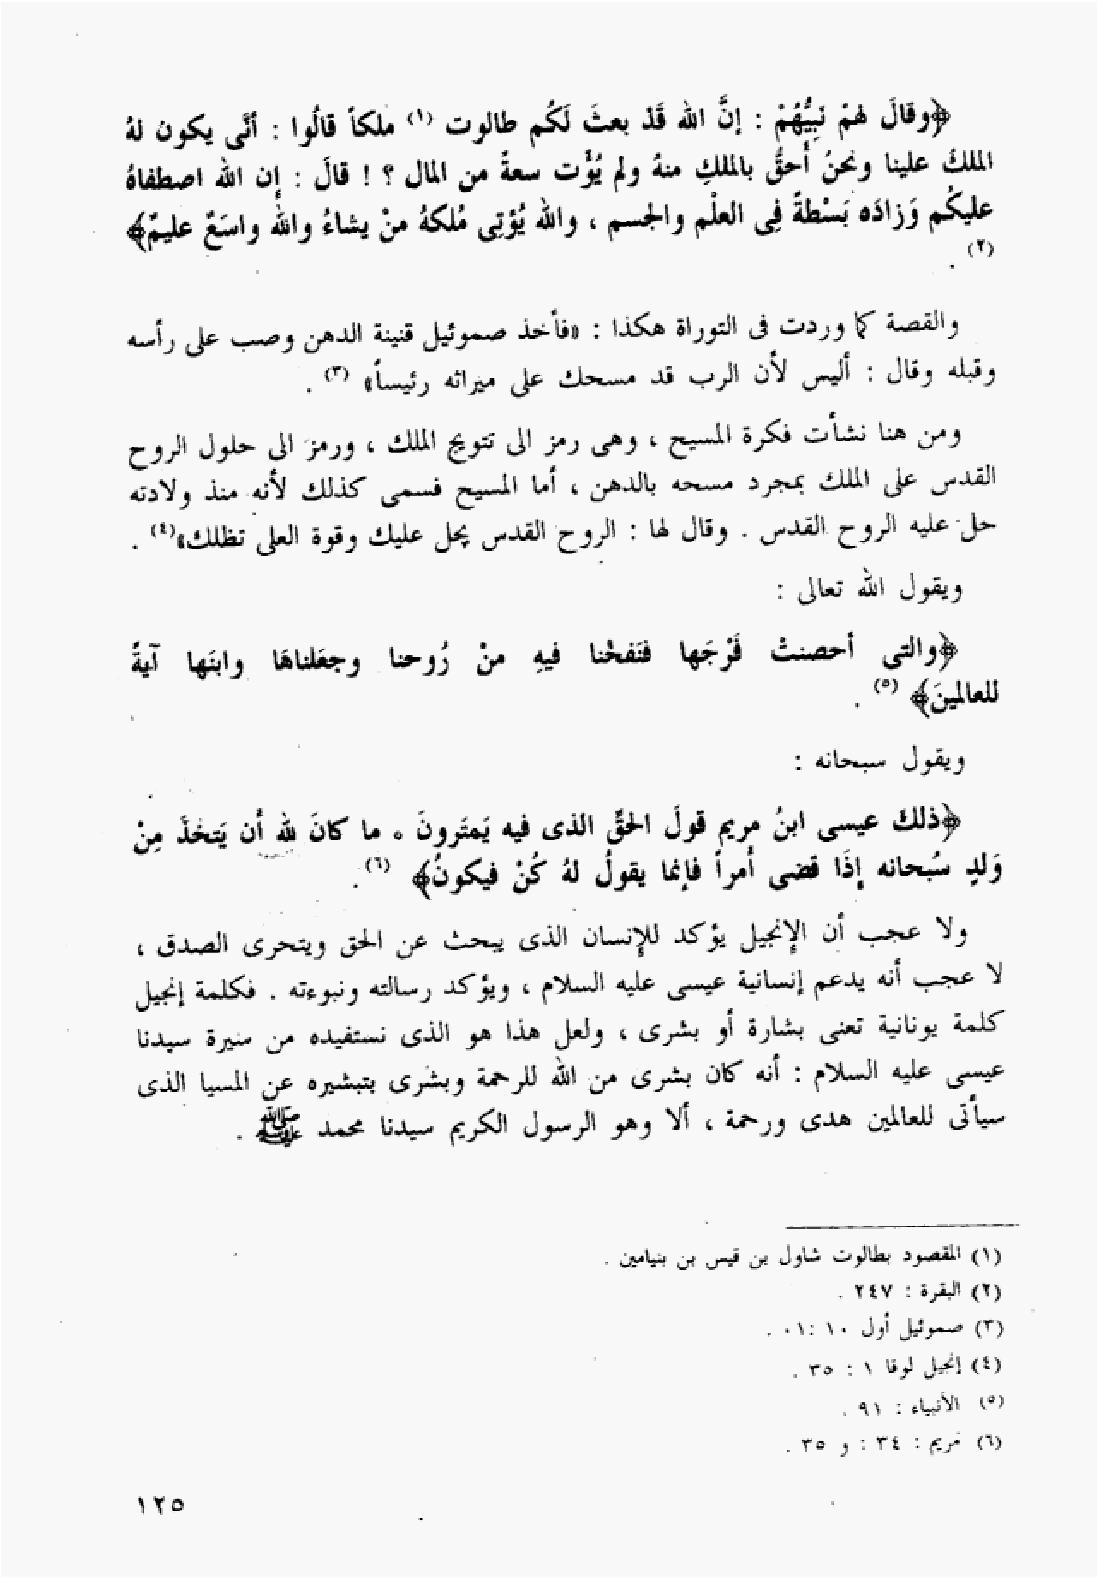 ﴿وقالَ لهمْ نَبِيُّهُمْ : إنَّ الله قَدْ بعثَ لَكُم طالوت (١) ملكاً قالُوا : أنَّى يكون لهُ
الملكُ علينا ونحنُ أَحقُّ بالملكِ منهُ ولم يُؤَت سعةً من المال ؟ ! قالَ : إن الله اصطفاهُ
عليكُم وَزادَه بَسْطةً فِى العلْم والجسم ، والله يُؤتِى مُلكهُ منْ يشاءُ والله واسَعٌ عليمٌ﴾
(٢) .
والقصة كما وردت فى التوراة هكذا : «فأخذ صموئيل قنينة الدهن وصب على رأسه
وقبله وقال : أليس لأن الرب قد مسحك على ميراثه رئيساً» (٣) .
ومن هنا نشأت فكرة المسيح ، وهى رمز الى تتويج الملك ، ورمز الى حلول الروح
القدس على الملك بمجرد مسحه بالدهن ، أما المسيح فسمى كذلك لأنه منذ ولادته
حل عليه الروح القدس . وقال لها : الروح القدس يحل عليك وقوة العلى تظلك»(٤) .
ويقول الله تعالى :
﴿والتى أحصنتْ فَرْجَها فنَفخْنا فيهِ منْ رُوحنا وجعَلناهَا وابنَها آيةً
للعالمينَ﴾ (٥) .
ويقول سبحانه :
﴿ذلكَ عيسى ابنُ مريم قولَ الحقِّ الذى فيه يَمتَرونَ ٥ ما كانَ لله أن يَتخذَ مِنْ
وَلدٍ سُبحانه إذَا قضى أَمراً فإنما يقولُ لهُ كُنْ فيكونُ﴾ (٦) .
ولا عجب أن الإنجيل يؤكد للإنسان الذى يبحث عن الحق ويتحرى الصدق ،
لا عجب أنه يدعم إنسانية عيسى عليه السلام ، ويؤكد رسالته ونبوءته . فكلمة إنجيل
كلمة يونانية تعنى بشارة أو بشرى ، ولعل هذا هو الذى نستفيده من سيرة سيدنا
عيسى عليه السلام : أنه كان بشرى من الله للرحمة وبشرى بتبشيره عن المسيا الذى
سيأتى للعالمين هدى ورحمة ، ألا وهو الرسول الكريم سيدنا محمد ﷺ .
(١) المقصود بطالوت شاول بن قيس بن بنيامين .
(٢) البقرة : ٢٤٧ .
(٣) صموئيل أول ١٠ :٠١ .
(٤) إنجيل لوقا ١ : ٣٥ .
(٥) الأنبياء : ٩١ .
(٦) مريم : ٣٤ : و ٣٥ .
١٢٥